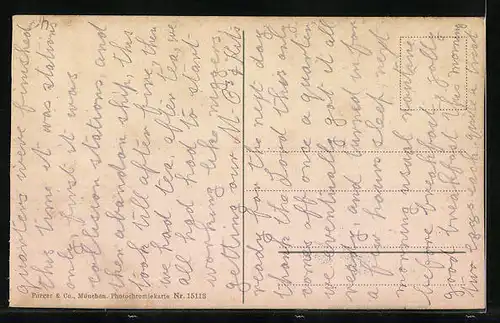 5
quarters were finished,
this time it was stations
only, first it was
collision stations, and
then abandon ship, this
took till after five, then
we had tea, after tea, we
all had had to start
working like niggers,
getting our
ready for the next day
thank the Lord this only
comes off once a quarter.
we eventually got it all
ready, and turned in for
a few hours sleep, next
morning usual routine
before breakfast, a jolly
good breakfast this morning
two eggs each, quite a treat
Purger & Co., München. Photochromiekarte Nr. 15113